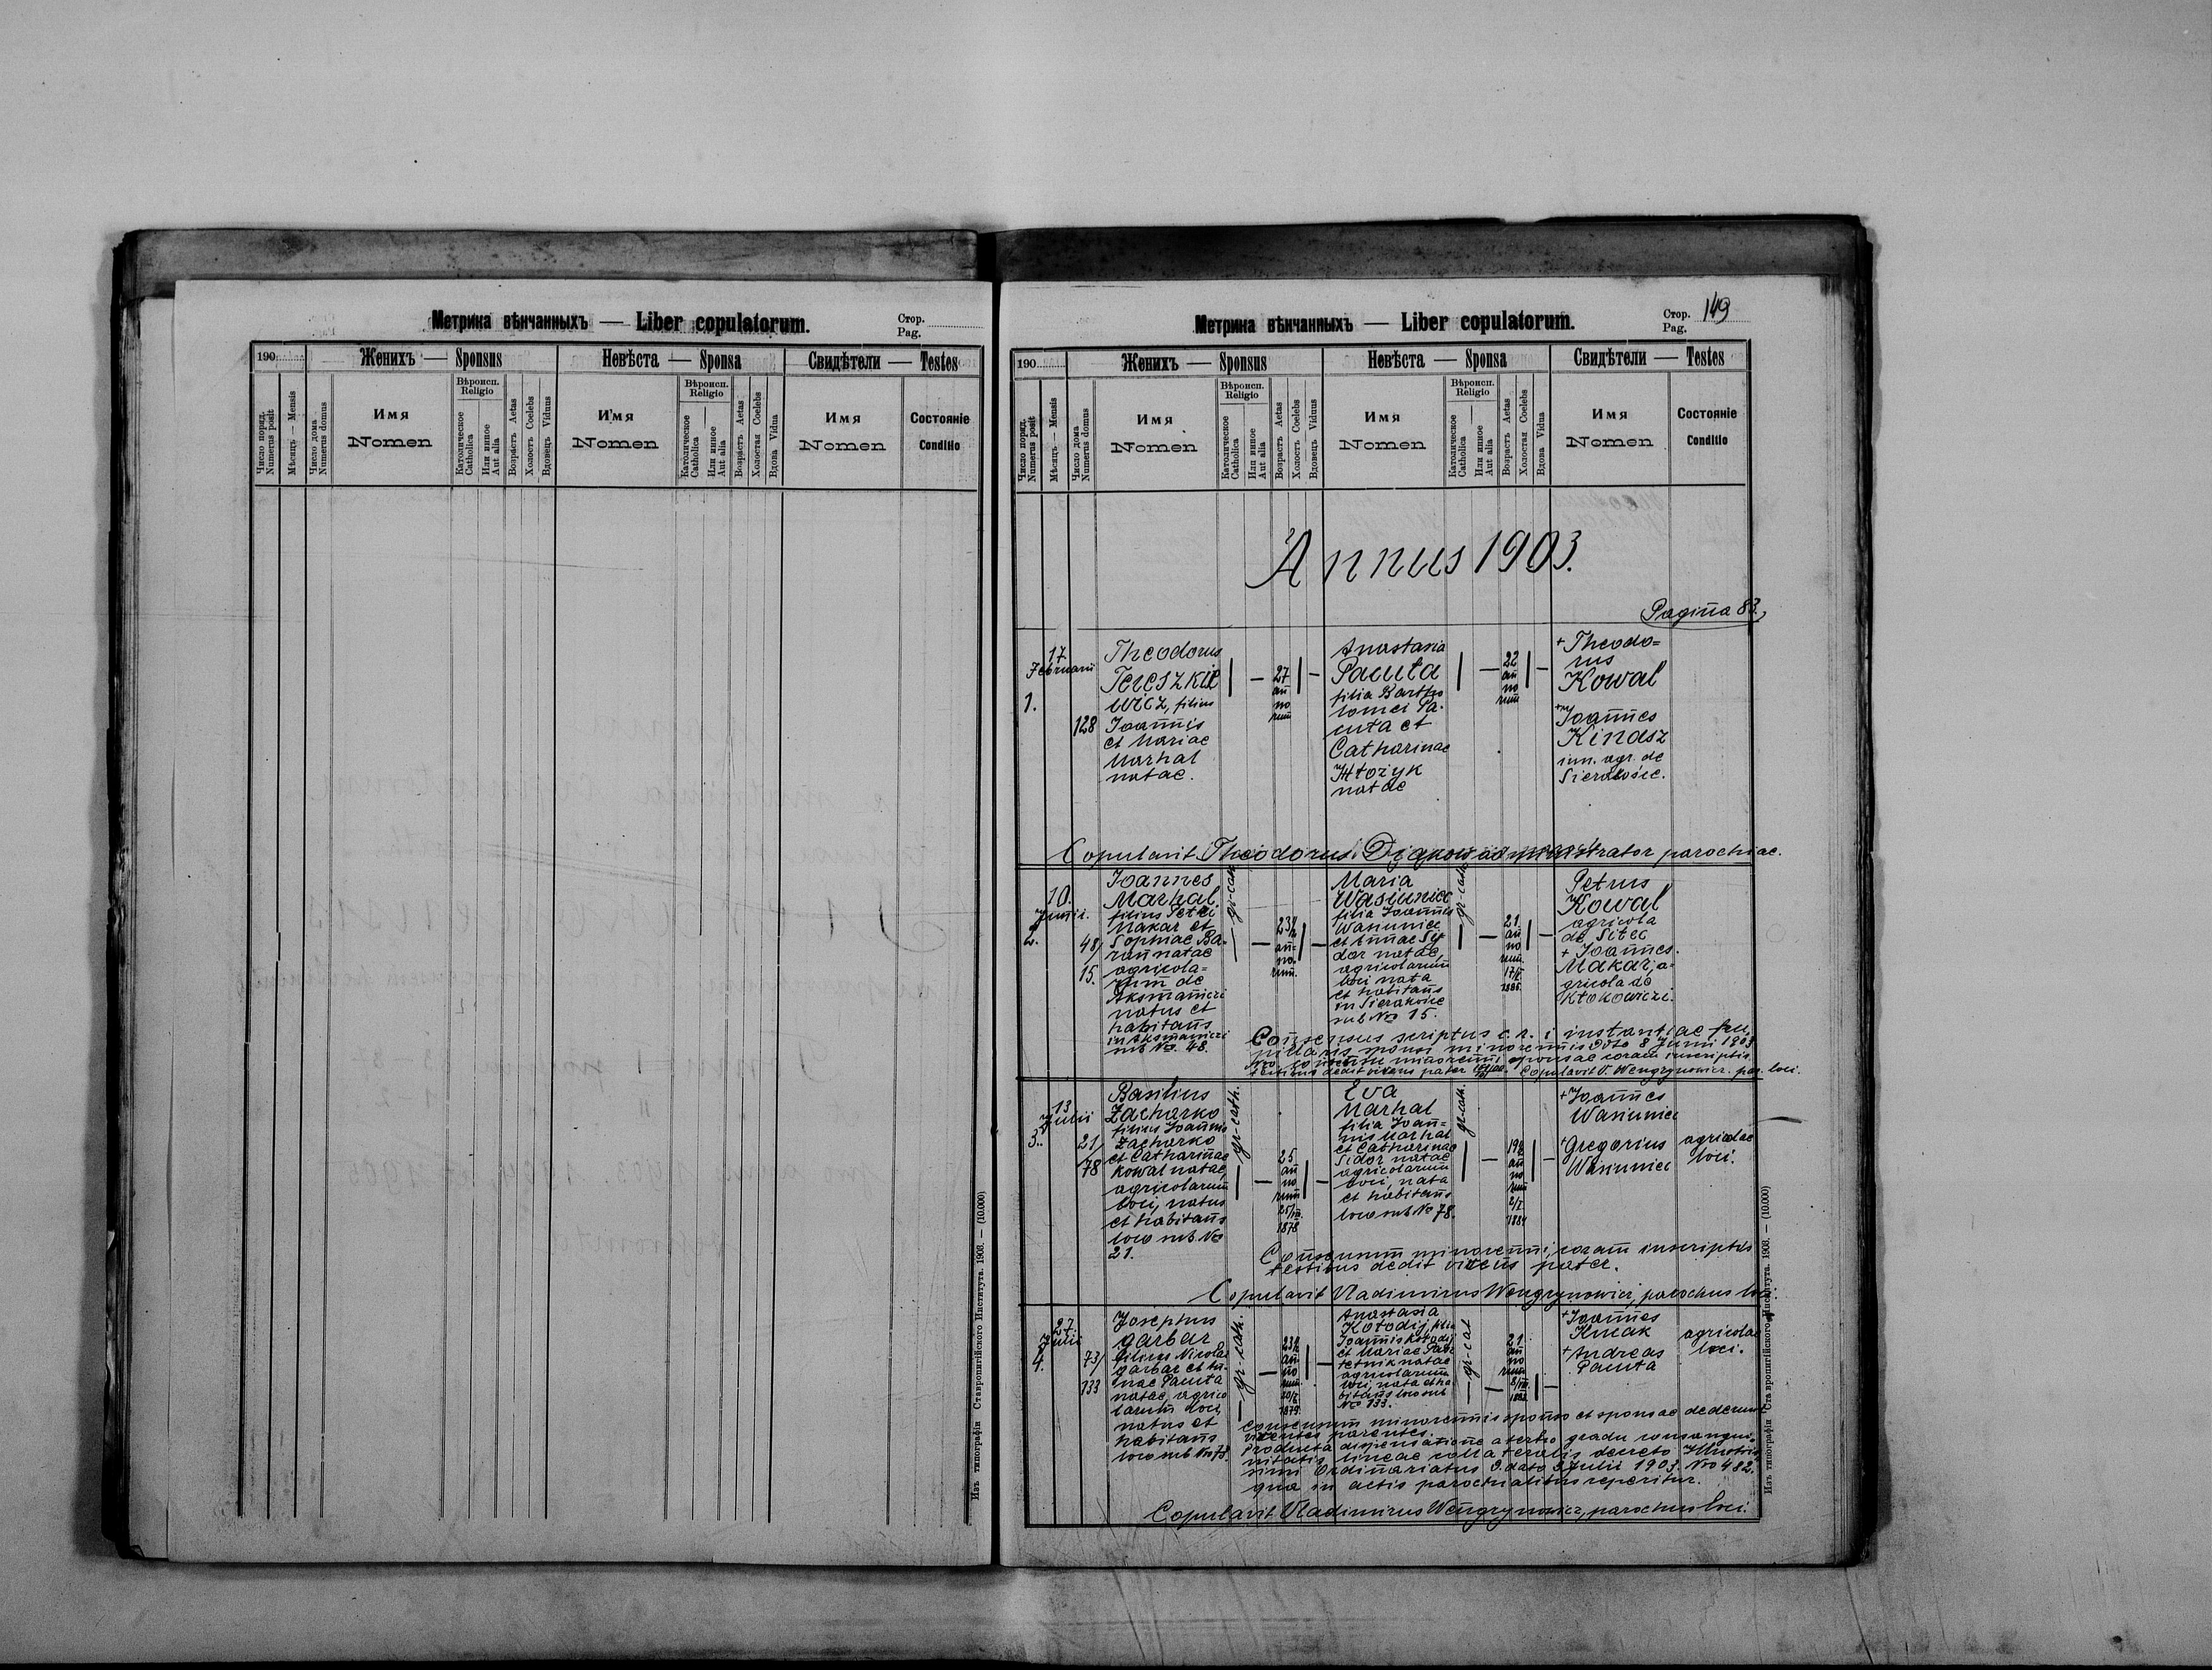 Метрика вѣнчанныхъ — Liber copulatorum.
Стор.
Pag.
190
Женихъ — Sponsus
Невѣста — Sponsa
Свидѣтели — Testes
Число поряд.
Numerus posit
Мѣсяцъ — Mensis
Число дома
Numerus domus
Имя
Nomen
Вѣроисп.
Religio
Католическое
Catholica
Или инное
Aut alia
Возрастъ Aetas
Холостъ Coelebs
Вдовецъ Viduus
Имя
Nomen
Вѣроисп.
Religio
Католическое
Catholica
Или инное
Aut alia
Возрастъ Aetas
Холостая Coelebs
Вдова Vidua
Имя
Nomen
Состояніе
Conditio
Изъ типографіи Ставропигійского Института. 1903. — (10.000)
Метрика вѣнчанныхъ — Liber copulatorum.
Стор.
Pag. 149
190
Женихъ — Sponsus
Невѣста — Sponsa
Свидѣтели — Testes
Число поряд.
Numerus posit
Мѣсяцъ — Mensis
Число дома
Numerus domus
Имя
Nomen
Вѣроисп.
Religio
Католическое
Catholica
Или инное
Aut alia
Возрастъ Aetas
Холостъ Coelebs
Вдовецъ Viduus
Имя
Nomen
Вѣроисп.
Religio
Католическое
Catholica
Или инное
Aut alia
Возрастъ Aetas
Холостая Coelebs
Вдова Vidua
Имя
Nomen
Состояніе
Conditio
Annus 1903.
Pagina 83.
17
Februarii
1.
128
Theodorus
Tereszkie
wicz, filius
Joannis
et Mariae
Marhal
natae.
27
an
no
rum
Anastasia
Pacuta
filia Bartho
lomei Pa-
cuta et
Catharinae
natae
22
an
no
rum
+ Theodo=
rus
Kowal
Joannes
Kinasz
agr. de
Sierakośce.
Copulavit Theodorus administrator parochiae.
10.
Junii.
2.
48/
15.
Joannes
Marhal
filius Petri
Makar et
Sophiae Ba-
ran natae
agricola=
rum de
Aksmanice
natus et
habitans
in Aksmanice
sub No. 48.
gr. cath.
23½
an=
no-
rum.
Maria
Wasiuniec
filia Joannis
Wasiuniec
et Annae Sy
dor natae,
agricolarum
loci nata
et habitans
in Sierakośce
sub No 15.
gr. cath.
21.
an
no
rum.
Petrus
Kowal
agricola
de Sitec
+ Joannes.
Makar, a-
gricola de
Kłokowice.
Consensus scriptus c. r. instantiae pu
pillaris sponsi minorennis dato 8 Junii 1903
testibus dedit vivens pater. Copulavit V. Wengrynowicz. par. loci.
13
Julii
3.
21/
78
Basilius
Zacharko
filius Joannis
Zacharko
et Catharinae
Kowal natae,
agricolarum
loci, natus
et habitans
loco sub No
21.
gr-cath.
25.
an
no
rum
25/III.
1878
Eva
Marhal
filia Joan=
nis Marhal
et Catharinae
Sidor natae
agricolarum
loci, nata
et habitans
loco sub No 78.
gr-cath.
19½
an
no
rum
2/I.
1884
+ Joannes
Wasiuniec
+ Gregorius
Wasiuniec
agricolae
loci.
Consensum minorenni, coram inscriptis
testibus dedit vivens pater.
Copulavit Vladimirus Wengrynowicz, parochus loci.
27.
Julii
4.
73/
133
Josephus
Garbar
filius Nicolai
Garbar et An-
nae Pacuta
natae, agrico
larum loci,
natus et
habitans
loco sub No 73.
gr-cath.
23½
an-
no
rum.
1879.
Anastasia
Kołodij, filia
Joannis Kołodij
et Mariae
natae
agricolarum
loci, nata et ha
bitans loco sub
No 133.
gr-cat
21.
an
no
rum
+ Joannes
Kucak
+ Andreas
Pacuta
agricolae
loci.
Consensum minorennis sponso et sponsae dederunt
viventes parentes.
Producta dispensatione a tertio gradu consangui=
nitatis lineae collateralis decreto Illustris
simi Ordinariatus d. dato 3 Julii 1903. Nro 482.
qua in actis parochialibus reperitur.
Copulavit Vladimirus Wengrynowicz, parochus loci.
Изъ типографіи Ставропигійского Института. 1903. — (10.000)